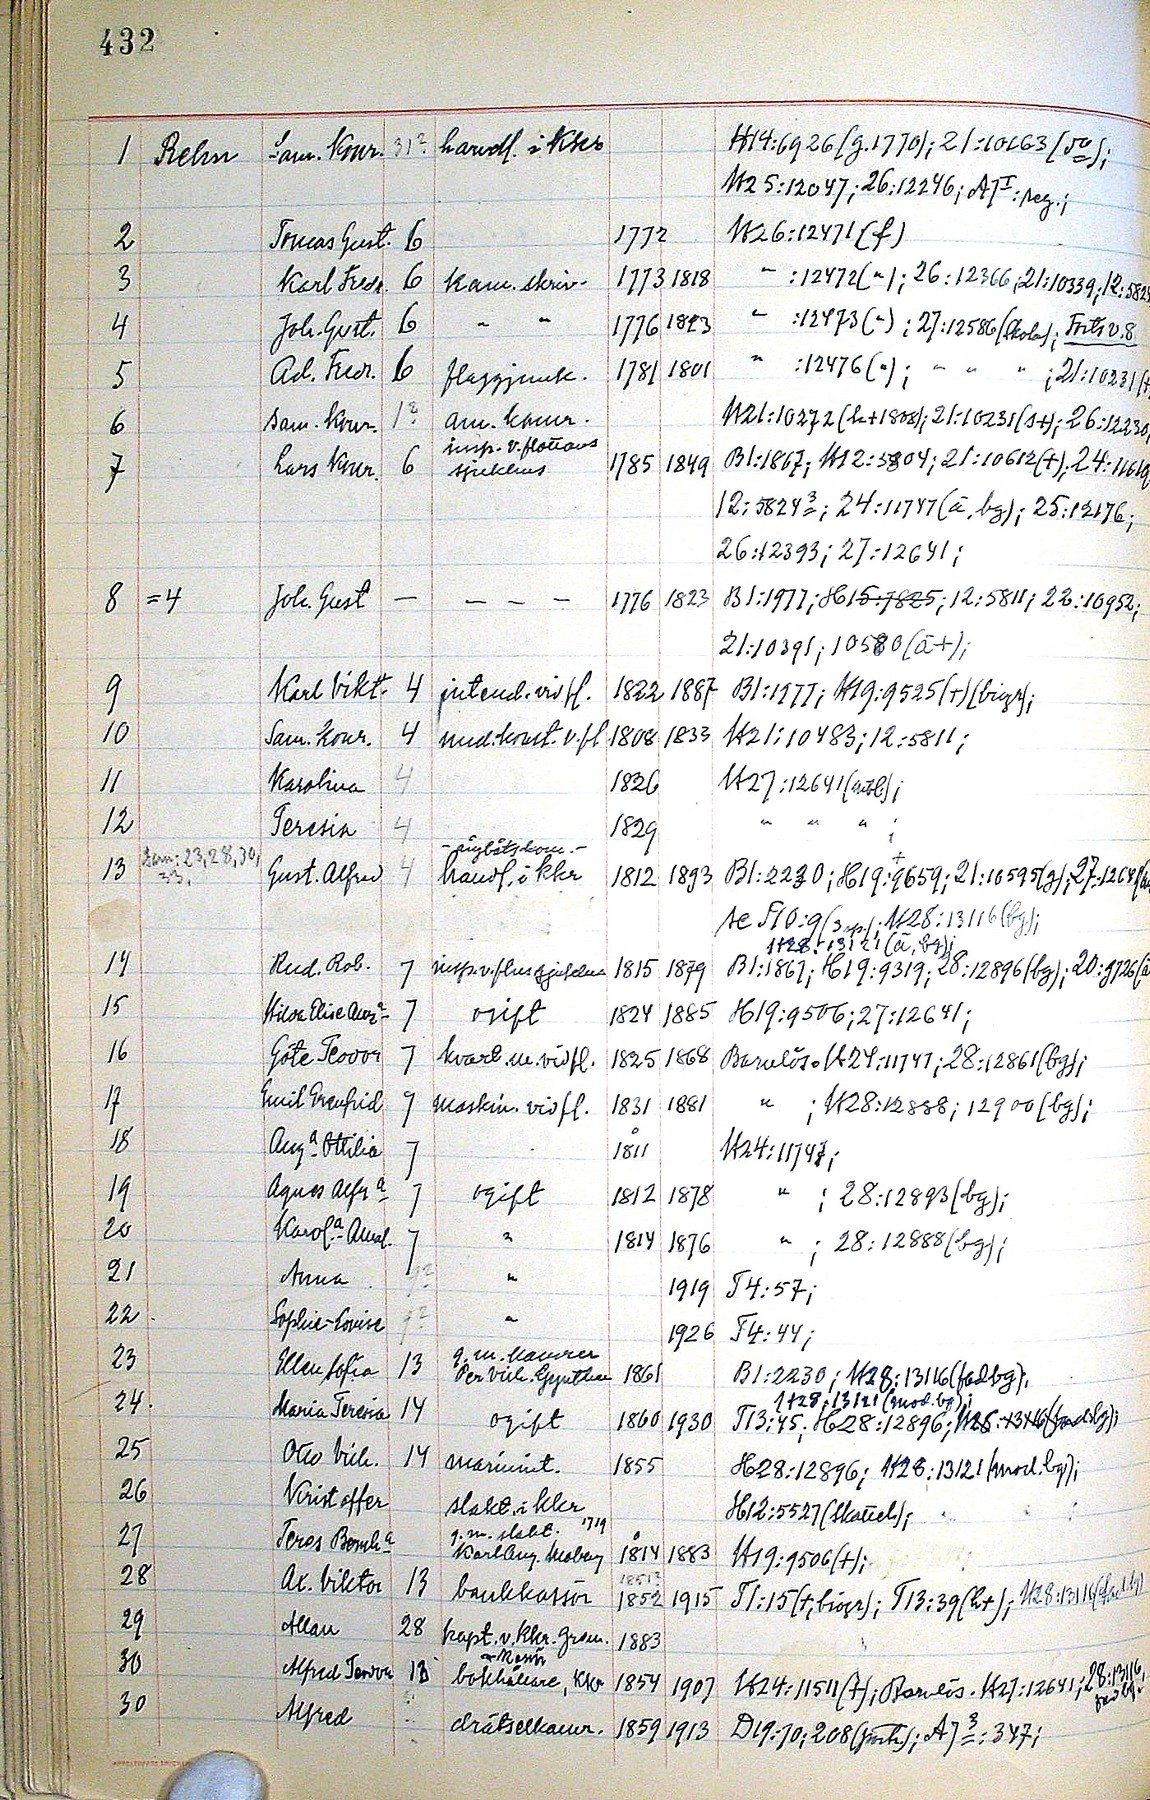 432
1 Rehn Sam. Konr. 31? handl. i Kkr H14:6926 (g. 1770); 21:10163
H25:12047; 26:12246; A7I: reg.;
2 Tomas Gust. 6 1772 H26:12471 (f)
3 Karl Fredr. 6 kam. skriv. 1773 1818 " :12472 (") ; 26:12366; 21:10339; 12:5824
4 Joh. Gust. 6 " " 1776 1823 " :12473 (") ; 27:12586 (skola); Forts v. 8
5 Ad. Fredr. 6 flaggjunk. 1781 1801 " :12476 (") ; " " " ; 21:10231
6 Sam. Konr. 1? am. kamr. H21:10272 (h+1808); 21:10231 (s+); 26:12230,
insp. v. flottans
7 Lars Konr. 6 sjukhus 1785 1849 B1:1867; H12:5804; 21:10612 (+); 24:11619
12:5824 3; 24:11747 (ä, bg); 25:12176;
26:12393; 27:12641;
8 =4 Joh. Gust — — — — — 1776 1823 B1:1977; H15:7825; 12:5811; 22:10952;
21:10391; 10580 (ä+);
9 Karl Vikt. 4 intend. vid fl. 1822 1887 B1:1977; H19:9525 (+) (biogr);
10 Sam. Konr. 4 und. konst. v. fl 1808 1833 H21:10483; 12:5811;
11 Karolina 4 1826 H27:12641
12 Teresia 4 1829 " " " ;
23, 28, 30, 33,
13 Gust. Alfred 4 handl. i kkr 1812 1893 B1:2230; H19:9659; 21:10595 (g); 27:12641
se T10:9; H28:13116 (bg);
H28:13121 (ä, bg);
14 Rud. Rob. 7 insp. v. flus sjukhus 1815 1879 B1:1867; H19:9319; 28:12896 (bg); 20:9726
15 Hilda Elise 7 ogift 1824 1885 H19:9506; 27:12641;
16 Göte Teodor 7 kvart. m. vid fl. 1825 1868 Barnlös. H24:11747; 28:12861 (bg);
17 Emil Erenfrid 7 maskin. vid fl. 1831 1881 " ; H28:12888; 12900 (bg);
18 Aug.a Ottilia 7 1811 H24:11747;
19 Agnes Alfr.a 7 ogift 1812 1878 " ; 28:12893 (bg);
20 Karol.a-Amal. 7 " 1814 1876 " ; 28:12888 (bg);
21 Anna 9? " 1919 T4:57;
22 Sophie-Lovise 9? " 1926 T4:44;
g. m. kamrer
23 Ellen Sofia 13 Per Vilh. 1861 B1:2230; H28:13116 (fad. bg).
H28:13121 (mod. bg);
24. Maria Teresia 14 ogift 1860 1930 T13:45; H28:12896; H28:13116 (fad. bg);
25 Otto Vilh. 14 marinint. 1855 H28:12896; H28:13121 (mod. bg);
26 Kristoffer slakt. i kkr H12:5527;
g. m. slakt. 1719
27 Teres Bernh.a Karl Aug. Moberg 1814 1883 H19:9506 (+);
1851?
28 Ax. Viktor 13 bankkassör 1852 1915 T1:15 (+, biogr); T13:39 (h+); H28:13116 (fad. bg)
29 Allan 28 kapt. v. Kkr. Gren. 1883
30 Alfred Teodor 13 bokhållare, Kkr 1854 1907 H24:11511 (+); Barnlös. H27:12641; 28:13116,
fad bg.
30 Alfred drätselkamr. 1859 1913 D19:70; 208; A7 3:347;